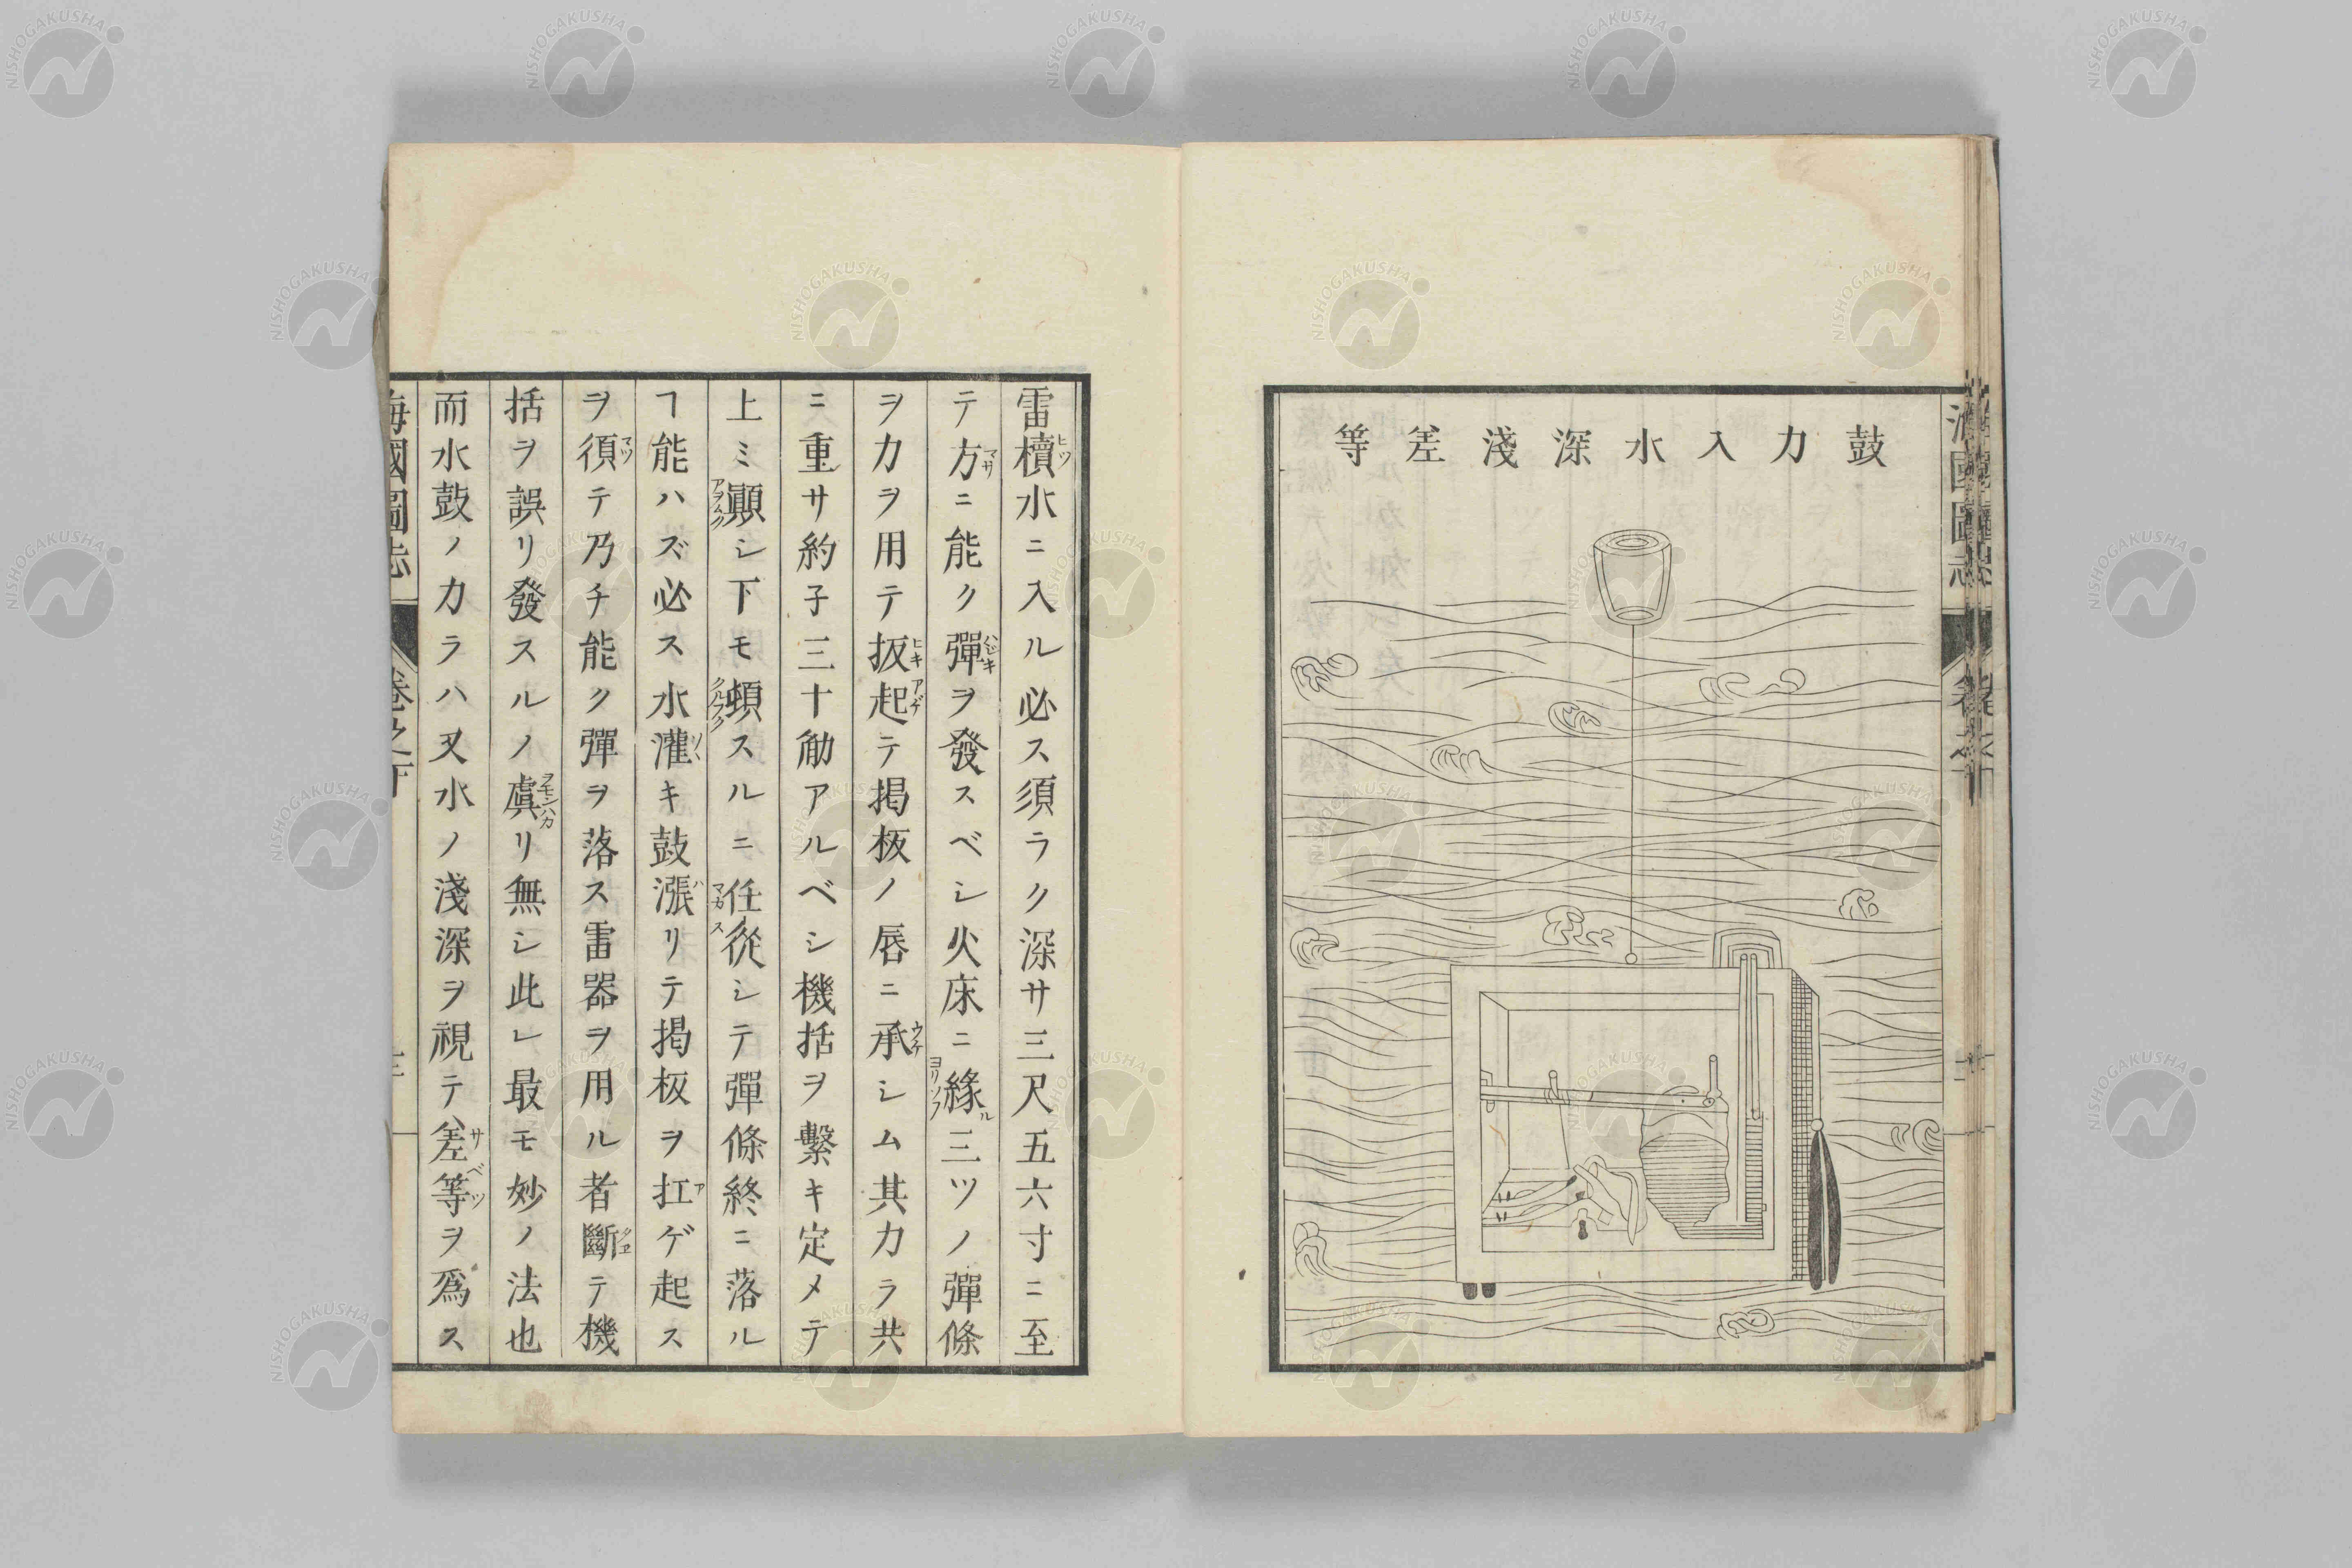 鼓力入水深淺差等
雷櫝水ニ入ル必ス須ラク深サ三尺五六寸ニ至
テ方ニ能ク彈ヲ發スベシ火床ニ緣ル三ツノ彈條
ヲ力ヲ用テ扳起テ揭板ノ唇ニ承シム其力ラ共
ニ重サ約子三十觔アルベシ機括ヲ繫キ定メテ
上ミ顚シ下モ頓スルニ任從シテ彈條終ニ落ル
ヿ能ハズ必ス水灌キ鼓漲リテ揭板ヲ扛ゲ起ス
ヲ須テ乃チ能ク彈ヲ落ス雷器ヲ用ル者斷テ機
括ヲ誤リ發スルノ虞リ無シ此レ最モ妙ノ法也
而水鼓ノ力ラハ又水ノ淺深ヲ視テ差等ヲ爲ス
海國圖志 卷之十
NISHOGAKUSHA